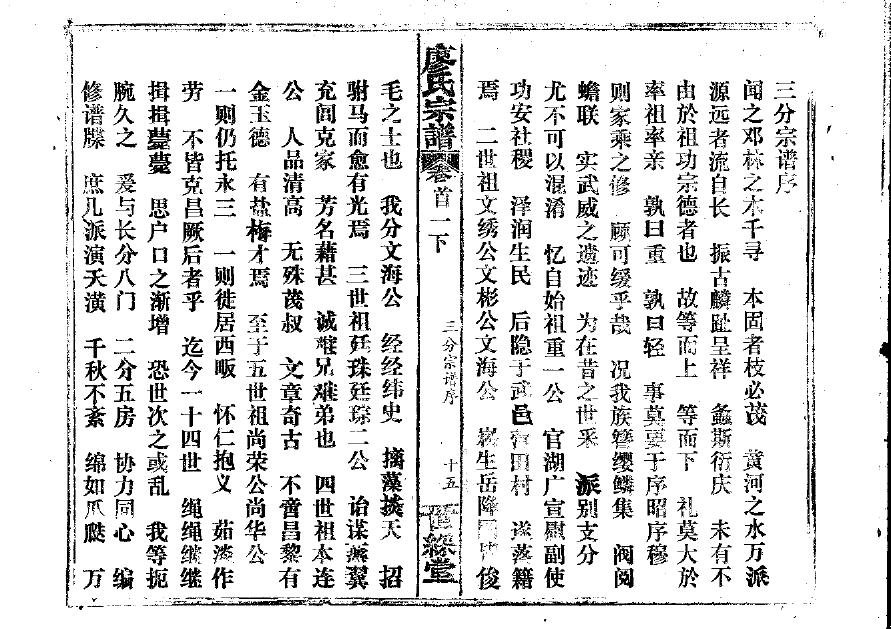 三分宗谱序
闻之邓林之木千寻　本固者枝必茂　黄河之水万派
源远者流自长　振古麟趾呈祥　螽斯衍庆　未有不
由於祖功宗德者也　故等而上　等而下　礼莫大於
率祖率亲　孰曰重　孰曰轻　事莫要于序昭序穆
则家乘之修　顾可缓乎哉　况我族簪缨鳞集　阀阅
蟾联　实武威之遗迹　为在昔之世系　派别支分
尤不可以混淆　忆自始祖重一公　官湖广宣慰副使
功安社稷　泽润生民　后隐于武邑田村　遂落籍
焉　二世祖文绣公文彬公文海公　生岳降　俊
廖氏宗譜
卷首一下
三分宗谱序
十五
絲堂
毛之士也　我分文海公　经经纬史　摛藻掞天　招
驸马而愈有光焉　三世祖廷珠廷琮二公　诒谋燕翼
充闾克家　芳名藉甚　诚难兄难弟也　四世祖本连
公　人品清高　无殊茂叔　文章奇古　不啻昌黎有
金玉德　有盐梅才焉　至于五世祖尚荣公尚华公
一则仍托永三　一则徙居西畈　怀仁抱义　茹漆作
劳　不皆克昌厥后者乎　迄今一十四世　绳绳继继
揖揖薨薨　思户口之渐增　恐世次之或乱　我等扼
腕久之　爰与长分八门　二分五房　协力同心　编
修谱牒　庶几派演天潢　千秋不紊　绵如瓜瓞　万